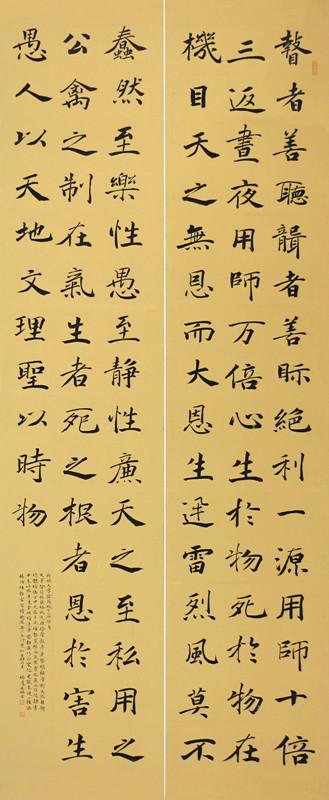 瞽者善聽聾者善眎絕利一源用師十倍
三返晝夜用師万倍心生於物死於物在
機目天之無恩而大恩生迅雷烈風莫不
蠢然至樂性愚至靜性廉天之至私用之
公禽之制在氣生者死之根者恩於害生
愚人以天地文理聖以時物